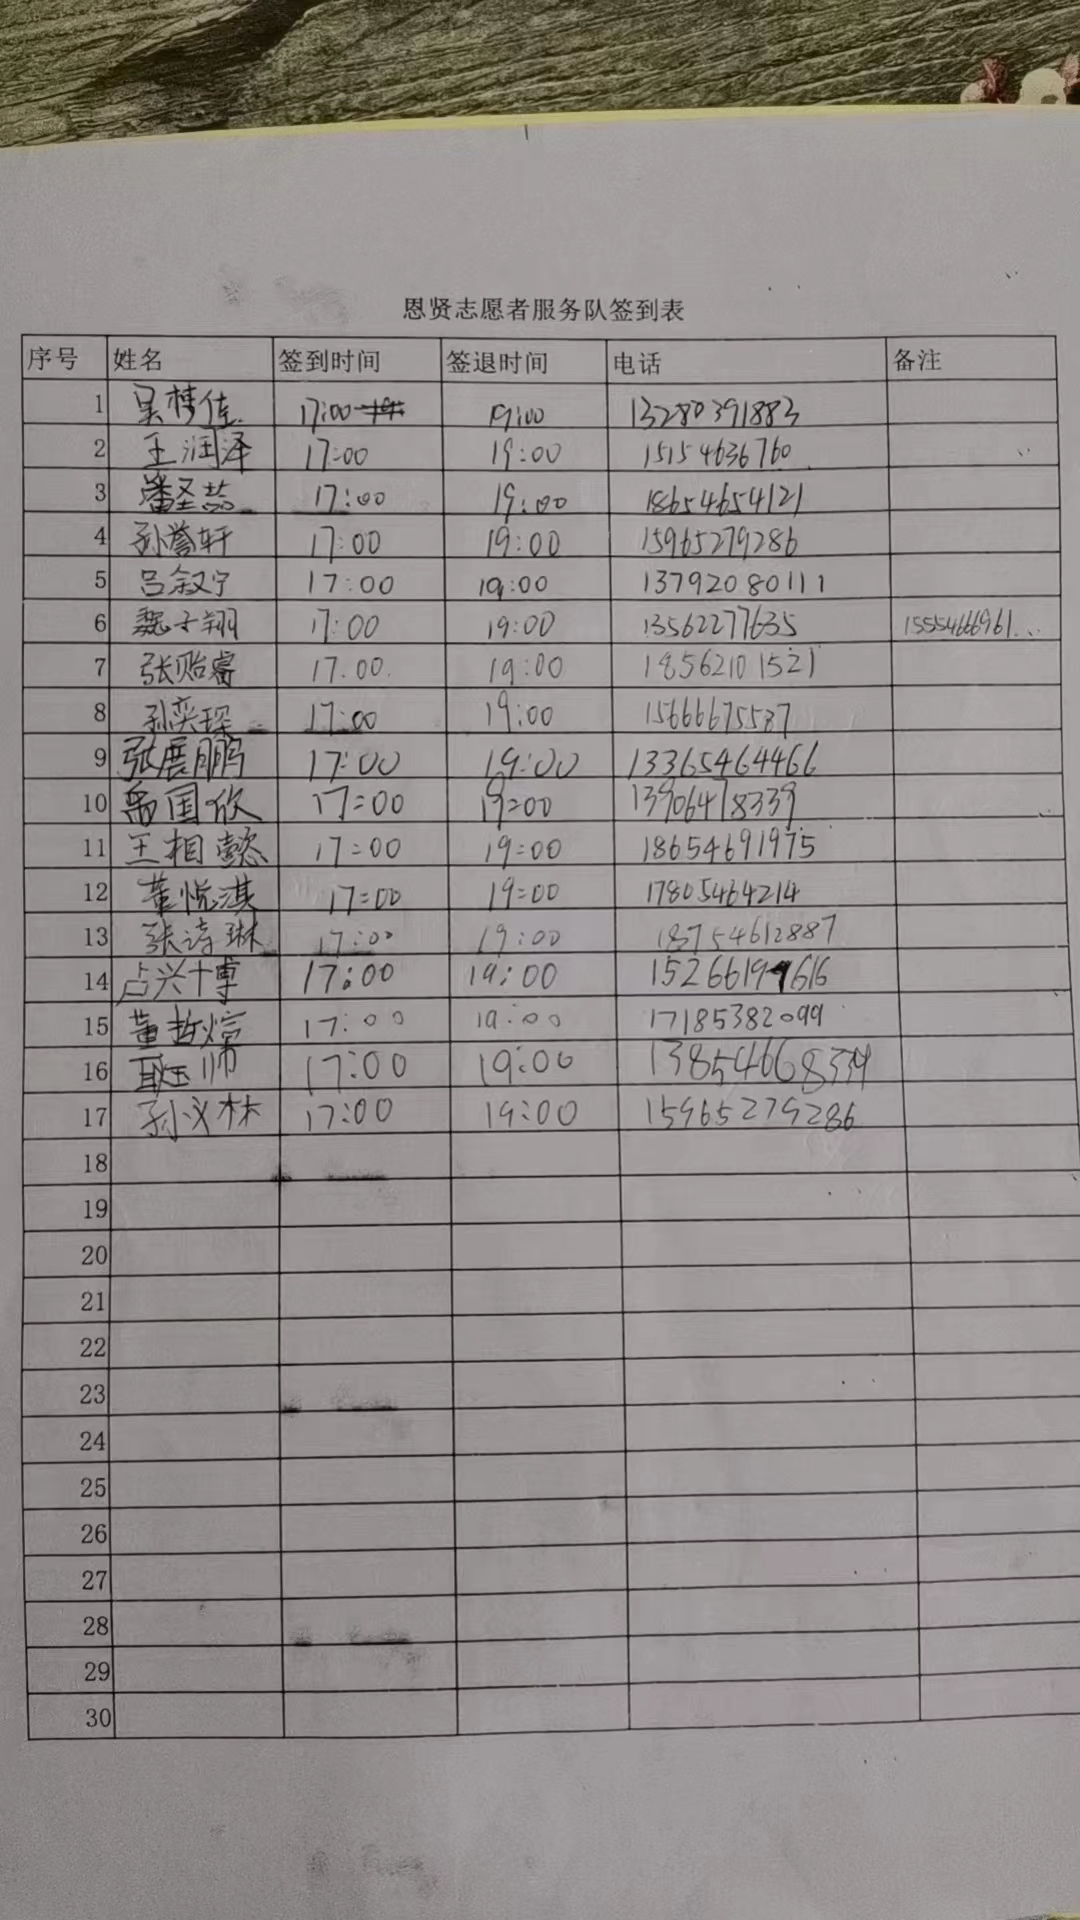 恩贤志愿者服务队签到表
序号 姓名 签到时间 签退时间 电话 备注
1 吴 佳 17:00 19:00 13280391883
2 王润泽 17:00 19:00 15154636760
3 潘圣蕊 17:00 19:00 18654654121
4 孙誉轩 17:00 19:00 15965279286
5 吕叙宁 17:00 19:00 13792080111
6 魏子翔 17:00 19:00 13562277635 15554666961...
7 张贻睿 17.00. 19:00 18562101521
8 孙奕琛 17:00 19:00 15666675587
9 张展鹏 17:00 19:00 13365464466
10 禹国欣 17:00 19:00 13906478339
11 王相懿 17:00 19:00 18654691975
12 董悦淇 17:00 19:00 17805464214
13 张诗琳 17:00 19:00 18754612887
14 占兴十博 17:00 19:00 1526619 616
15 董哲 17:00 19:00 17185382099
16 耿玉帅 17:00 19:00
17 孙义林 17:00 19:00 15965279286
18
19
20
21
22
23
24
25
26
27
28
29
30